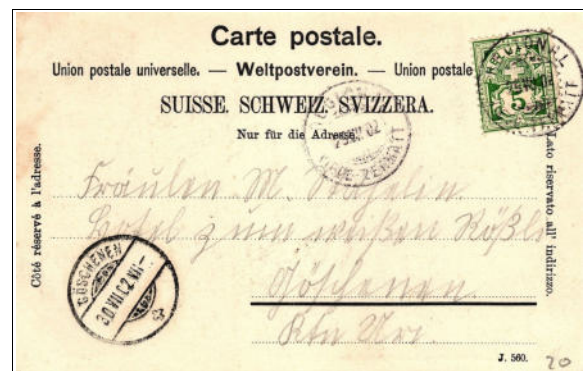 Carte postale.
Union postale universelle. — Weltpostverein. — Union postale
SUISSE. SCHWEIZ. SVIZZERA.
Nur für die Adresse.
Côté réservé à l'adresse.
Lato riservato all' indirizzo.
5
Fräulen M. Stehelin
Hotel zum weißen Rößli
Göschenen.
Ktn Uri.
GÖSCHENEN
30.VII.02.VII-
ZERMATT
J. 560.
20